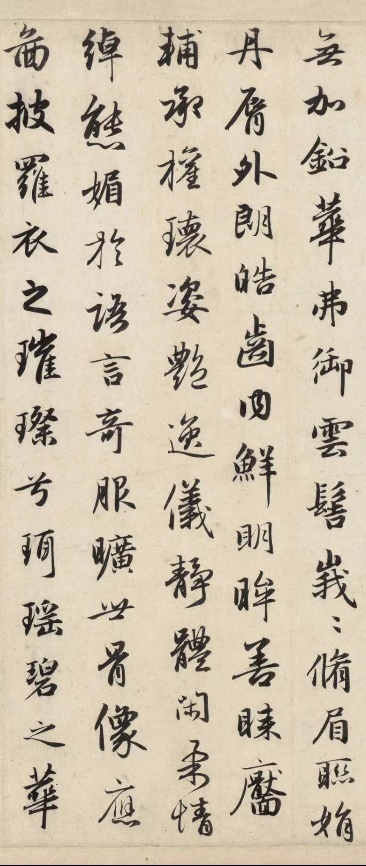 無加鉛華弗御雲髻峩〻脩眉聮娟
丹脣外朗皓齒內鮮明眸善睐靨
輔承權瓌姿艷逸儀靜體閑柔情
綽態媚於語言奇服曠世骨像應
啚披羅衣之璀璨兮珥瑶碧之華